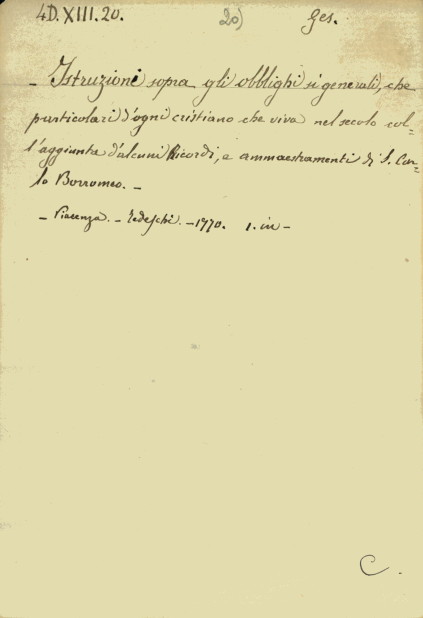 4D.XIII.20. 20) Ges.
- Istruzione sopra gli obblighi sì generali, che
particolari d'ogni cristiano che viva nel secolo col-
l'aggiunta d'alcuni Ricordi, e ammaestramenti di S. Car-
lo Borromeo. -
- Piacenza. - Tedeschi. - 1770. 1. in -
C.